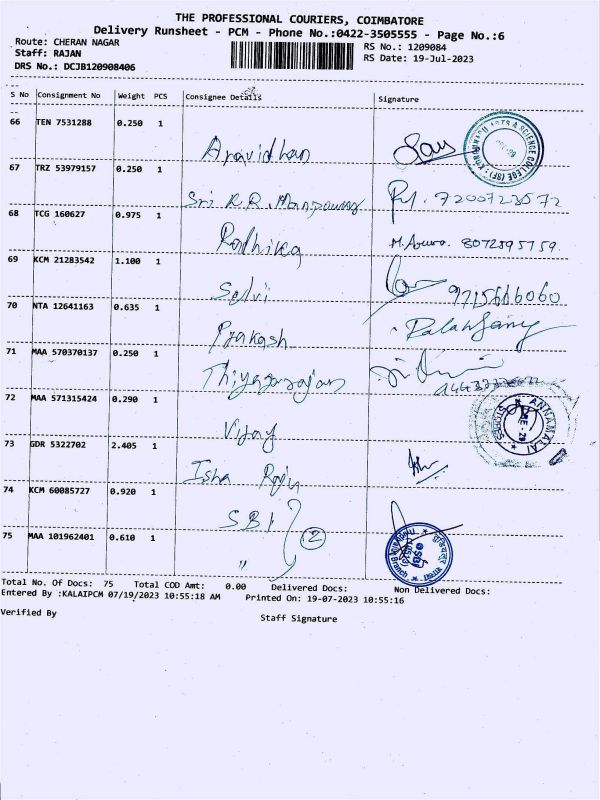 THE PROFESSIONAL COURIERS, COIMBATORE
Delivery Runsheet - PCM - Phone No.:0422-3505555 - Page No.:6
Route: CHERAN NAGAR
RS No.: 1209084
Staff: RAJAN
RS Date: 19-Jul-2023
DRS No.: DCJB120908406
S No Consignment No Weight PCS Consignee Details Signature
66 TEN 7531288 0.250 1
Aravidhan
67 TRZ 53979157 0.250 1
Sri K.R.
68 TCG 160627 0.975 1
Radhika 8072895759.
69 KCM 21283542 1.100 1
Selvi 9715686060
70 NTA 12641163 0.635 1
Prakash
71 MAA 570370137 0.250 1
Thiyagarajan
72 MAA 571315424 0.290 1
Vijay
ANNAMALAI
73 GDR 5322702 2.405 1
Isha Raju
74 KCM 60085727 0.920 1
SBI
2
75 MAA 101962401 0.610 1
"
Total No. Of Docs: 75 Total COD Amt: 0.00 Delivered Docs: Non Delivered Docs:
Entered By :KALAIPCM 07/19/2023 10:55:18 AM Printed On: 19-07-2023 10:55:16
Verified By
Staff Signature